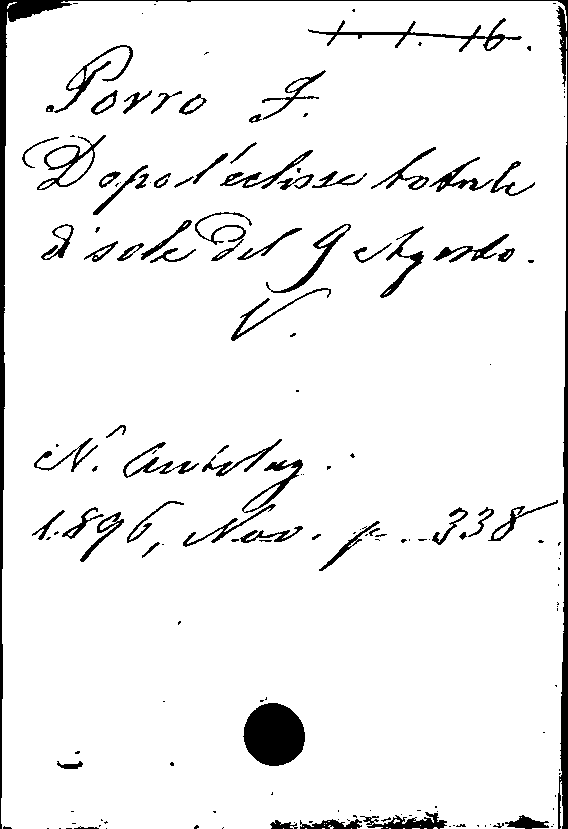 1. 1. 16.
Porro F.
Dopo l'eclisse totale
di sole del 9 Agosto.
V.
N. Antolog.
1896, Nov. p. 338.